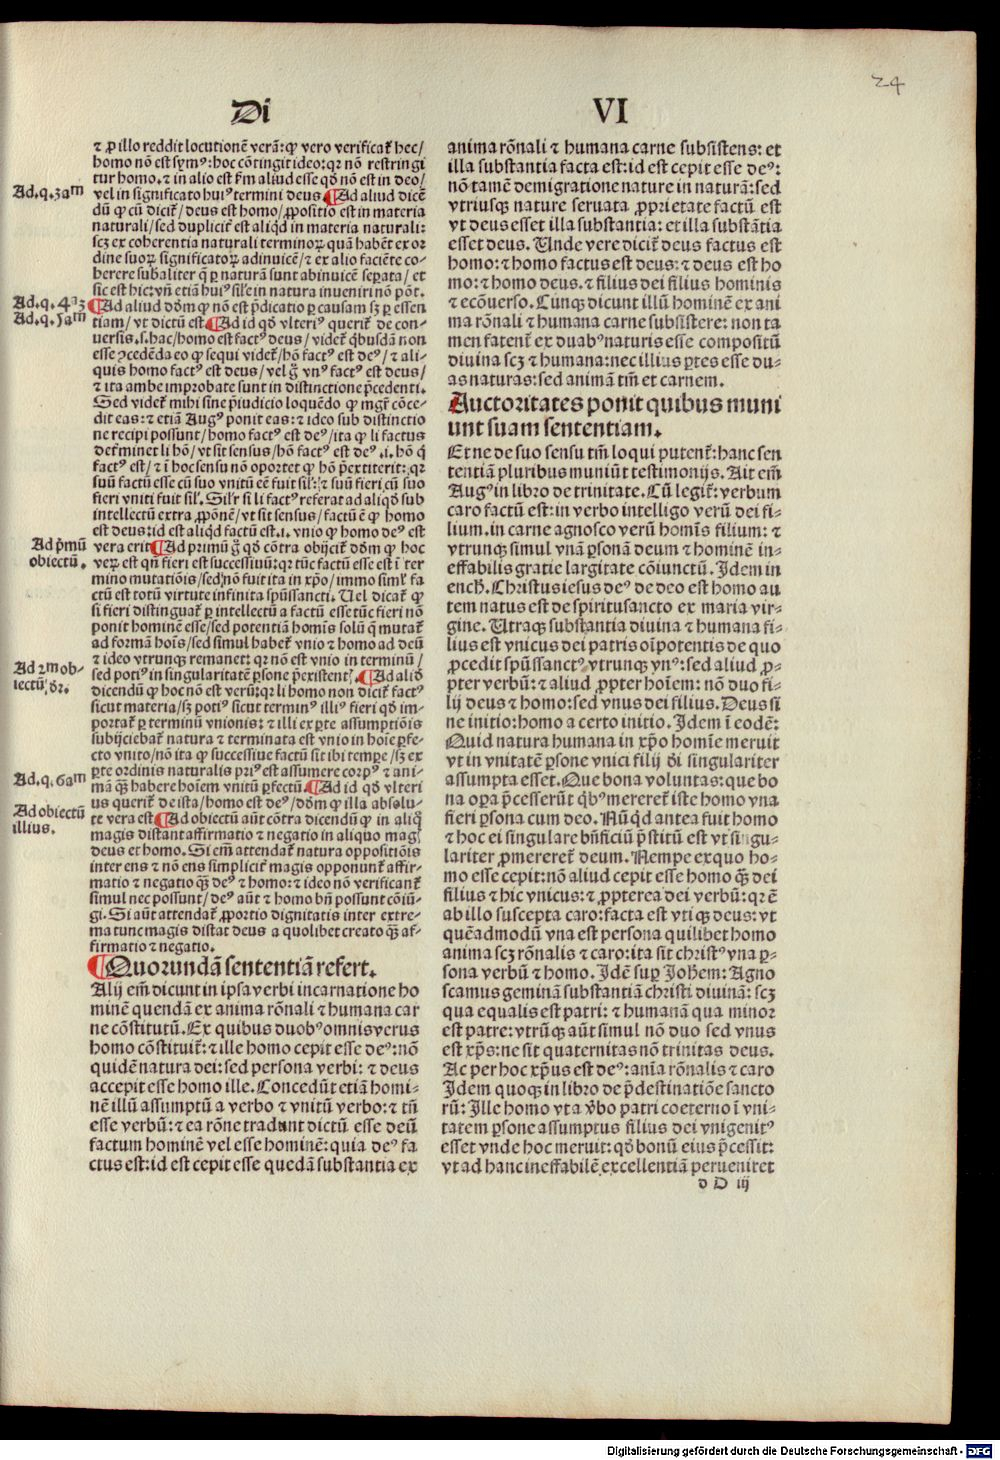 24
Di
VI
⁊ ꝓ illo reddit locutionē verā: ꝙ vero verificat̄ hec/
homo nō est symꝰ: hoc cōtingit ideo: qꝛ nō restringi
tur homo. ⁊ in alio est s̄m aliud esse qđ nō est in deo/
Ad.q.3am
vel in significato huiꝰ termini deus ¶ Ad aliud dicē
dū ꝙ cū dicit̄/ deus est homo/ ꝓpositio est in materia
naturali/ sed duplicit̄ est aliqđ in materia naturali:
scꝫ ex coherentia naturali terminoꝝ quā habēt ex or
dine suoꝝ significatoꝝ adinuicē/ ⁊ ex alio faciēte co-
herere subaliter q̄ ꝑ naturā sunt abinuicē seꝑata/ et
sic est hic: vn̄ etiā huiꝰ sił̄e in natura inueniri nō pōt.
Ad.q.4aꝫ
¶ Ad aliud dōm ꝙ nō est p̄dicatio ꝑ causam sꝫ ꝑ essen
Ad.q.5am
tiam/ vt dictū est. ¶ Ad id qđ vlteriꝰ querit̄ de con-
uersis. s. hac/ homo est factꝰ deus/ videt̄ q̇busdā non
esse ꝯcedēda eo ꝙ sequi videt̄/ hō factꝰ est deꝰ/ ⁊ ali-
quis homo factꝰ est deus/ vel ḡ vnꝰ factꝰ est deus/
⁊ ita ambe improbate sunt in distinctione p̄cedenti.
Sed videt̄ mihi sine p̄iudicio loquēdo ꝙ mgr̄ cōce-
dit eas: ⁊ etiā Augꝰ ponit eas: ⁊ ideo sub distinctio
ne recipi possunt/ homo factꝰ est deꝰ/ ita ꝙ li factus
det̄minet li hō/ vt sit sensus/ hō factꝰ est deꝰ .i. hō q̇
factꝰ est/ ⁊ ī hoc sensu nō oportet ꝙ hō p̄extiterit: qꝛ
suū factū esse cū suo vnitū eē fuit sił: ⁊ suū fieri cū suo
fieri vniti fuit sił. Sił̄r si li factꝰ referat ad aliqđ sub
intellectū extra ꝓpōnē/ vt sit sensus/ factū ē ꝙ homo
est deus: id est aliqđ factū est .i. vnio ꝙ homo deꝰ est
Ad p̄mū
obiectū.
vera erit ¶ Ad primū ḡ qđ cōtra obijcit̄ dōm ꝙ hoc
veꝝ est qn̄ fieri est successiuū: qꝛ tūc factū esse est ī ter
mino mutatiōis/ sed nō fuit ita in xp̄o/ immo siml̄ fa
ctū est totū virtute infinita spūssancti. Uel dicat̄ ꝙ
si fieri distinguat̄ ꝑ intellectū a factū esse tūc fieri nō
ponit hominē esse/ sed potentiā homīs solū q̄ mutat̄
ad formā hoīs/ sed simul habet̄ vnio ⁊ homo ad deū
⁊ ideo vtrunqꝫ remanet: qꝛ nō est vnio in terminū/
Ad 2m ob-
iectū, dr̄.
sed potiꝰ in singularitatē ꝑsone p̄existentꝭ. ¶ Ad aliđ
dicendū ꝙ hoc nō est verū: qꝛ li homo non dicit̄ factꝰ
sicut materia/ sꝫ potiꝰ sicut terminꝰ illiꝰ fieri qđ im-
portat̄ ꝑ terminū vnionis: ⁊ illi ex ꝑte assumptiōis
subijciebat̄ natura ⁊ terminata est vnio in hoīe ꝑfe-
cto vnito/ nō ita ꝙ successiue factū sit ibi temꝑe/ sꝫ ex
ꝑte ordinis naturalis priꝰ est assumere corpꝰ ⁊ ani-
Ad.q.6am
mā qꝫ habere hoīem vnitū ꝑfectū. ¶ Ad id qđ vlteri
us querit̄ de ista/ homo est deꝰ/ dōm ꝙ illa absolu-
Ad obiectū
illius.
te vera est ¶ Ad obiectū aūt cōtra dicendū ꝙ in aliq̇
magis distant affirmatio ⁊ negatio in aliquo magꝭ
deus et homo. Si em̄ attendat̄ natura oppositiōis
inter ens ⁊ nō ens simplicit̄ magis opponunt̄ affir-
matio ⁊ negatio qꝫ deꝰ ⁊ homo: ⁊ ideo nō verificant̄
simul nec possunt/ deꝰ aūt ⁊ homo bn̄ possunt cōiū-
gi. Si aūt attendat̄ ꝓportio dignitatis inter extre-
ma tunc magis distat deus a quolibet creato qꝫ af-
firmatio ⁊ negatio.
¶ Quorundā sententiā refert.
Alij em̄ dicunt in ipsa verbi incarnatione ho
minē quendā ex anima rōnali ⁊ humana car
ne cōstitutū. Ex quibus duobꝰ omnis verus
homo cōstituit̄: ⁊ ille homo cepit esse deꝰ: nō
quidē natura dei: sed persona verbi: ⁊ deus
accepit esse homo ille. Concedūt etiā homi-
nē illū assumptū a verbo ⁊ vnitū verbo: ⁊ tn̄
esse verbū: ⁊ ea rōne tradunt dictū esse deū
factum hominē vel esse hominē: quia deꝰ fa
ctus est: id est cepit esse quedā substantia ex
anima rōnali ⁊ humana carne subsistens: et
illa substantia facta est: id est cepit esse deꝰ:
nō tamē demigratione nature in naturā: sed
vtriusqꝫ nature seruata ꝓprietate factū est
vt deus esset illa substantia: et illa substātia
esset deus. Unde vere dicit̄ deus factus est
homo: ⁊ homo factus est deus: ⁊ deus est ho
mo: ⁊ homo deus. ⁊ filius dei filius hominis
⁊ ecōuerso. Cunqꝫ dicunt illū hominē ex ani
ma rōnali ⁊ humana carne subsistere: non ta
men fatent̄ ex duabꝰ naturis esse compositū
diuina scꝫ ⁊ humana: nec illius ꝑtes esse du-
as naturas: sed animā tm̄ et carnem.
Auctoritates ponit quibus muni
unt suam sententiam.
Et ne de suo sensu tm̄ loqui putent̄: hanc sen
tentiā pluribus muniūt testimonijs. Ait em̄
Augꝰ in libro de trinitate. Cū legit̄: verbum
caro factū est: in verbo intelligo verū dei fi-
lium. in carne agnosco verū homīs filium: ⁊
vtrunqꝫ simul vnā ꝑsonā deum ⁊ hominē in-
effabilis gratie largitate cōiunctū. Idem in
ench̄. Christus iesus deꝰ de deo est homo au
tem natus est de spiritusancto ex maria vir-
gine. Utraqꝫ substantia diuina ⁊ humana fi-
lius est vnicus dei patris oīpotentis de quo
ꝓcedit spūssanctꝰ, vtrunqꝫ vnꝰ: sed aliud ꝓ-
pter verbū: ⁊ aliud ꝓpter hoīem: nō duo fi-
lij deus ⁊ homo: sed vnus dei filius. Deus si
ne initio: homo a certo initio. Idem ī eodē:
Quid natura humana in xp̄o homīe meruit
vt in vnitatē ꝑsone vnici filij dī singulariter
assumpta esset. Que bona voluntas: que bo
na oꝑa p̄cesserūt q̇bꝰ mereret̄ iste homo vna
fieri ꝑsona cum deo. Nūqđ antea fuit homo
⁊ hoc ei singulare bn̄ficiū p̄stitū est vt singu-
lariter ꝓmereret̄ deum. Nempe exquo ho-
mo esse cepit: nō aliud cepit esse homo qꝫ dei
filius ⁊ hic vnicus: ⁊ ꝓpterea dei verbū: qꝛ ē
ab illo suscepta caro: facta est vtiqꝫ deus: vt
quēadmodū vna est persona quilibet homo
anima scꝫ rōnalis ⁊ caro: ita sit christꝰ vna ꝑ-
sona verbū ⁊ homo. Idē suꝑ Joħem: Agno
scamus geminā substantiā christi diuinā: scꝫ
qua equalis est patri: ⁊ humanā qua minor
est patre: vtrūqꝫ aūt simul nō duo sed vnus
est xp̄s: ne sit quaternitas nō trinitas deus.
Ac per hoc xp̄us est deꝰ: anīa rōnalis ⁊ caro
Idem quoqꝫ in libro de p̄destinatiōe sancto
rū: Ille homo vt a v̄bo patri coeterno ī vni-
tatem ꝑsone assumptus filius dei vnigenitꝰ
esset vnde hoc meruit: qđ bonū eius p̄cessit:
vt ad hanc ineffabilē excellentiā perueniret
d D iij
Digitalisierung gefördert durch die Deutsche Forschungsgemeinschaft - DFG